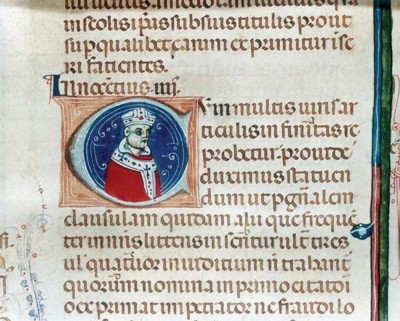 in scolis ip̄is sub suis titulis prout
sup̱ qualibet earum exprimitur inse
ri facientes.
Innocentius iiij.
C Um in multis iuris ar
ticulis infinitas re
probetur. prouide
duximus statuen
dum ut p̱ gn̄alem
clausulam quidam alij que freque̅
ter in nr̄is litteris inseritur ult̄ tres
ul̓ quatuor in iuditium n̄ trahant̄
quorum nomina in primo citato̅ı
o exprimat impetrator ne fraudi lo